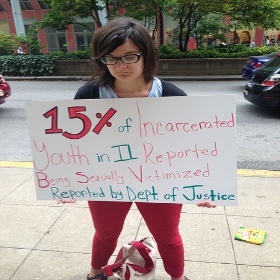 15% of Incarcerated
Youth in IL Reported
Being Sexually Victimized
Reported by Dept. of Justice